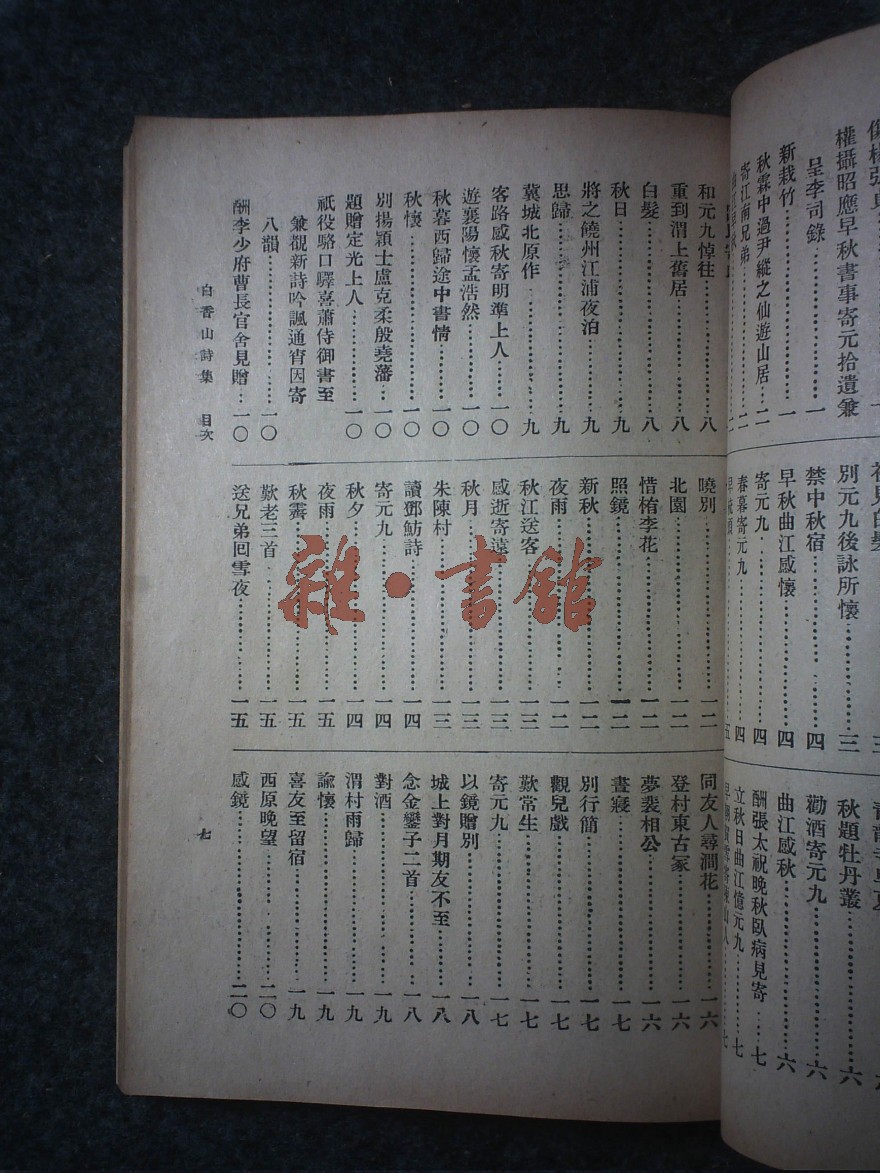 權攝昭應早秋書事寄元拾遺兼
呈李司錄……一
新栽竹……一
秋霖中過尹縱之仙遊山居……二
寄江南兄弟……二
別元九後詠所懷……三
禁中秋宿……四
早秋曲江感懷……四
寄元九……四
春暮寄元九……四
秋題牡丹叢……六
勸酒寄元九……六
曲江感秋……六
酬張太祝晚秋臥病見寄……七
立秋日曲江憶元九……七
和元九悼往……八
重到渭上舊居……八
白髮……八
秋日……九
將之饒州江浦夜泊……九
思歸……九
冀城北原作……九
客路感秋寄明準上人……一〇
遊襄陽懷孟浩然……一〇
秋暮西歸途中書情……一〇
秋懷……一〇
別揚穎士盧克柔殷堯藩……一〇
題贈定光上人……一〇
祇役駱口驛喜蕭侍御書至
兼觀新詩吟諷通宵因寄
八韻……一〇
酬李少府曹長官舍見贈……一〇
曉別……一二
北園……一二
惜栯李花……一二
照鏡……一二
新秋……一二
夜雨……一二
秋江送客……一三
感逝寄遠……一三
秋月……一三
朱陳村……一三
讀鄧魴詩……一四
寄元九……一四
秋夕……一四
夜雨……一五
秋霽……一五
歎老三首……一五
送兄弟回雪夜……一五
同友人尋澗花……一六
登村東古冢……一六
夢裴相公……一六
晝寢……一七
別行簡……一七
觀兒戲……一七
歎常生……一七
寄元九……一七
以鏡贈別……一八
城上對月期友不至……一八
念金鑾子二首……一八
對酒……一九
渭村雨歸……一九
諭懷……一九
喜友至留宿……一九
西原晚望……二〇
感鏡……二〇
白香山詩集 目次
七
雜·書館